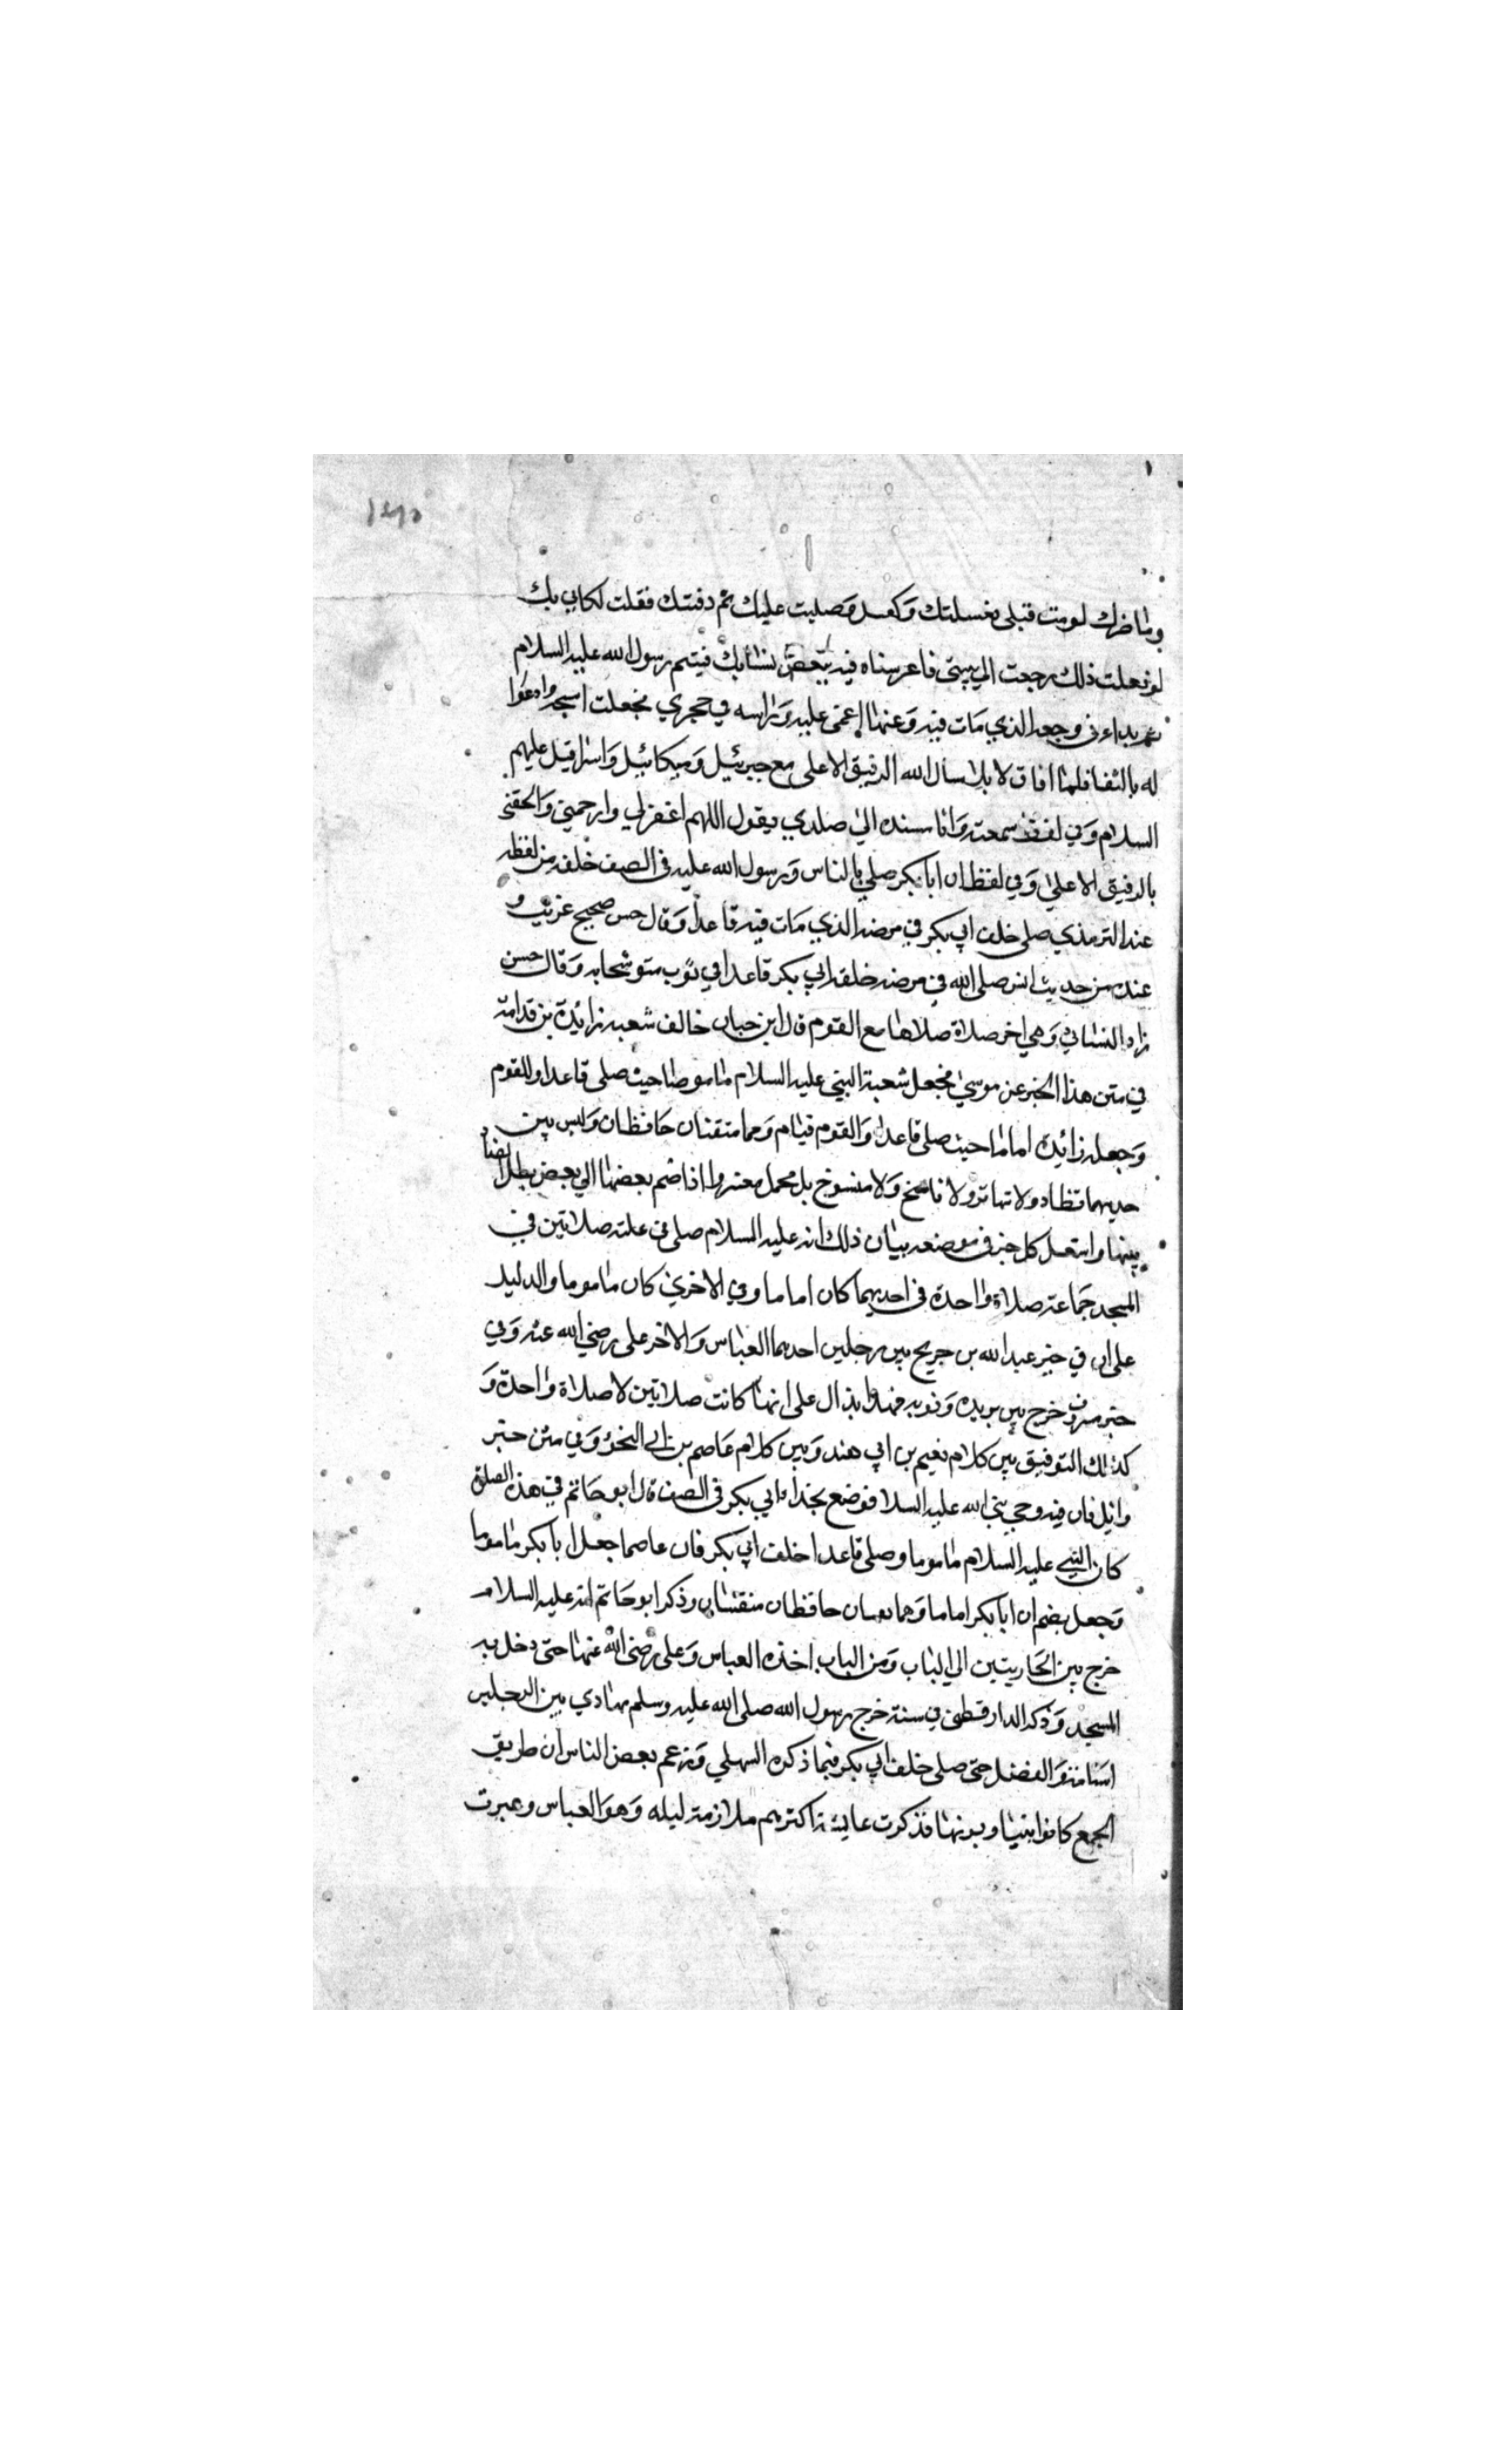 ١٤٣٥
وما ضرك لو مت قبلي فغسلتك وكفنـ وصليت عليك ثم دفنتك فقلت لكاني بك
لو فعلت ذلك رجعت الي بيتي فاعرسناه فيه ببعض نسايك فيتم رسول الله عليه السلام
ثم بداء في وجعه الذي مات فيه وعنها اغمى عليه وراسه في حجري فجعلت امسحه وادعوا
له بالشفا فلما افاق لا بل اسال الله الرفيق الاعلى مع جبرئيل وميكائيل واسرافيل عليهم
السلام وفي لفظ سمعته وانا مسنده الي صدري يقول اللهم اغفر لي وارحمني والحقني
بالرفيق الاعلي وفي لفظ ان ابا بكر صلي بالناس ورسول الله عليه في الصف خلفه من لفظه
عند الترمذي صلى خلف ابي بكر في مرضه الذي مات فيه قاعدا وقال حسن صحيح غريب و
عنده من حديث انس صلى الله في مرضه خلف ابي بكر قاعدا في ثوب متوشحا به وقال حسن
زاد النسائي وهي اخر صلاة صلاها مع القوم قال ابن حبان خالف شعبه زائدة بن قدامة
في متن هذا الخبر عن موسي فجعل شعبة النبي عليه السلام ماموما حيث صلى قاعدا والقوم
وجعله زائدة اماما حيث صلى قاعدا والقوم قيام وهما متقنان حافظان وليس بين
حديهما تضاد ولا تهاتر ولا ناسخ ولا منسوخ بل مجمل مفسر واذا ضم بعضها الي بعض بطل التضاد
بينها واستعمل كل خبر في موضعه بيان ذلك انه عليه السلام صلى في علته صلاتين في
المسجد جماعة صلاة واحدة في احديهما كان اماما وفي الاخري كان ماموما والدليل
على ان في خبر عبد الله بن جريج بين رجلين احدهما العباس والاخر على رضي الله عنه وفي
خبر مسروق خرج بين بريدة ونوبه فهذا يدال على انها كانت صلاتين لا صلاة واحدة و
كذلك التوفيق بين كلام نعيم بن ابي هند وبين كلام عاصم بن ابي النجود وفي متن خبر
وائل فان فيه وجي بنبي الله عليه السلا فوضع بحذاء ابي بكر في الصف قال ابو حاتم في هذه الصلوة
كان النبي عليه السلام ماموما وصلى قاعدا خلف ابي بكر فان عاصما جعل ابا بكر ماموما
وجعل نعيم ان ابا بكر اماما وهما حافظان متقنان وذكر ابو حاتم انه عليه السلام
خرج بين الجاريتين الي الباب ومن الباب اخذه العباس وعلى رضي الله عنهما حتى دخل به
المسجد وذكر الدارقطني في سننه خرج رسول الله صلى الله عليه وسلم يهادي بين الرجلين
اسامة والفضل حتى صلى خلف ابي بكر فيما ذكره السهيلي وزعم بعض الناس ان طريق
الجمع كانوا فذكرت عايشة اكثرهم ملازمة ليله وهو العباس وعبرت